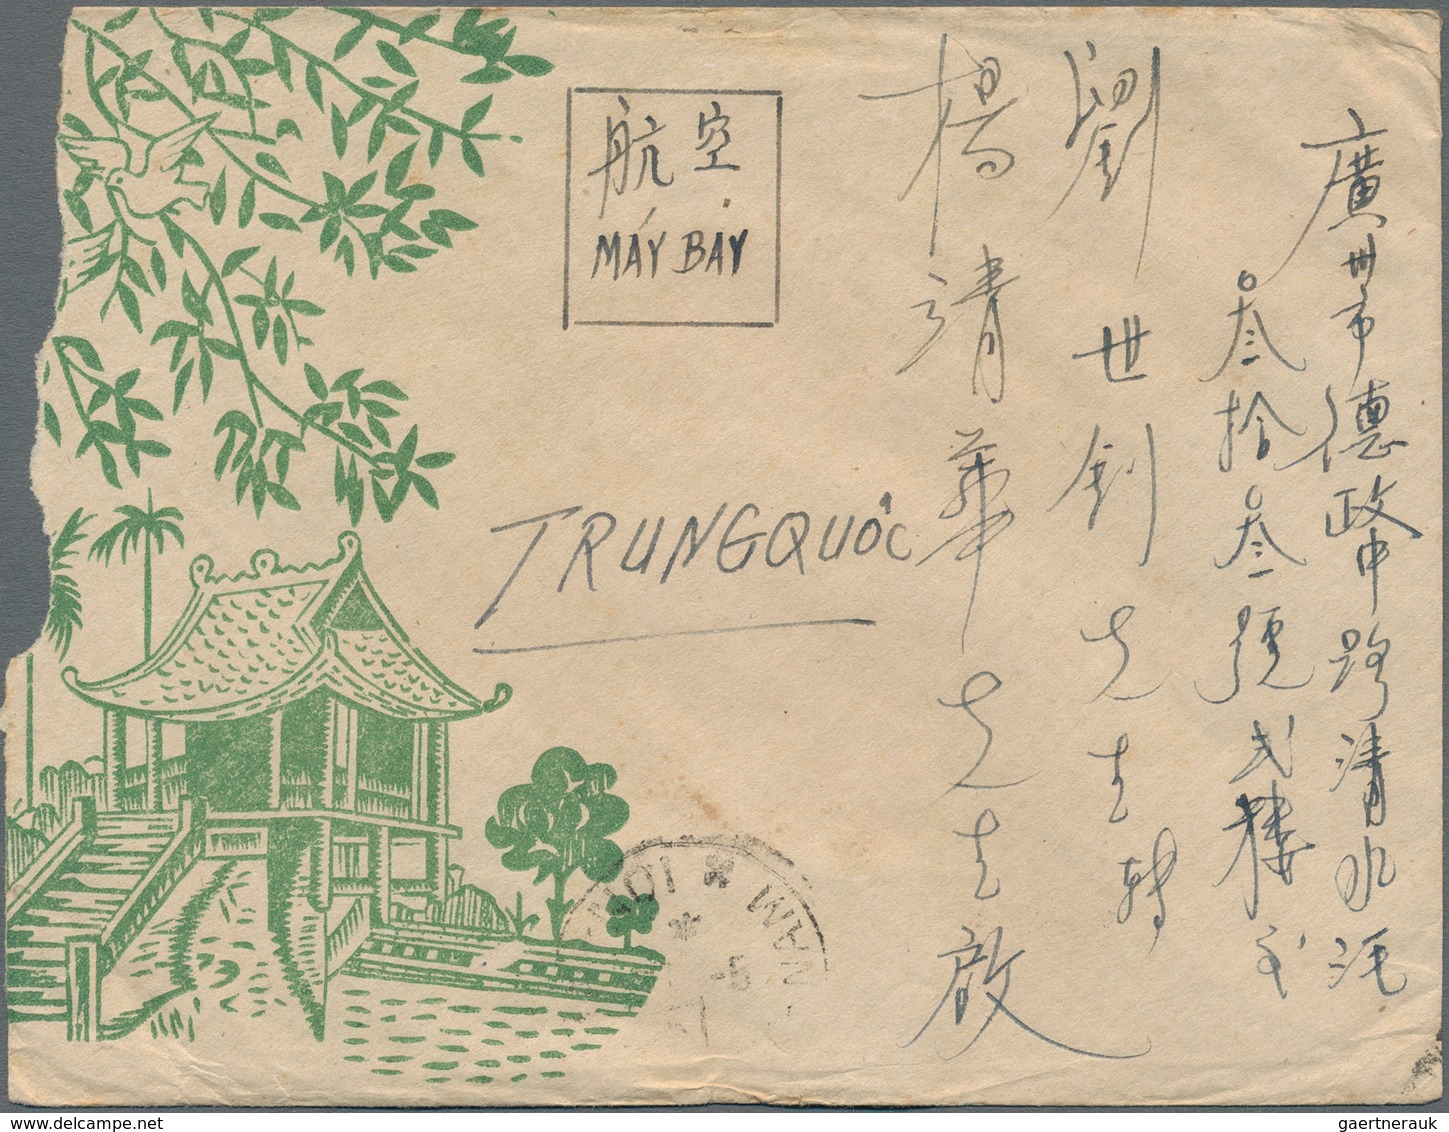 廣州市德政中路清水濠
叁拾叁號弍樓
劉世釗先生轉
楊清華先生啟
航空
MÁY BAY
TRUNG QUỐC
NAM
NOI
gaertnerauk